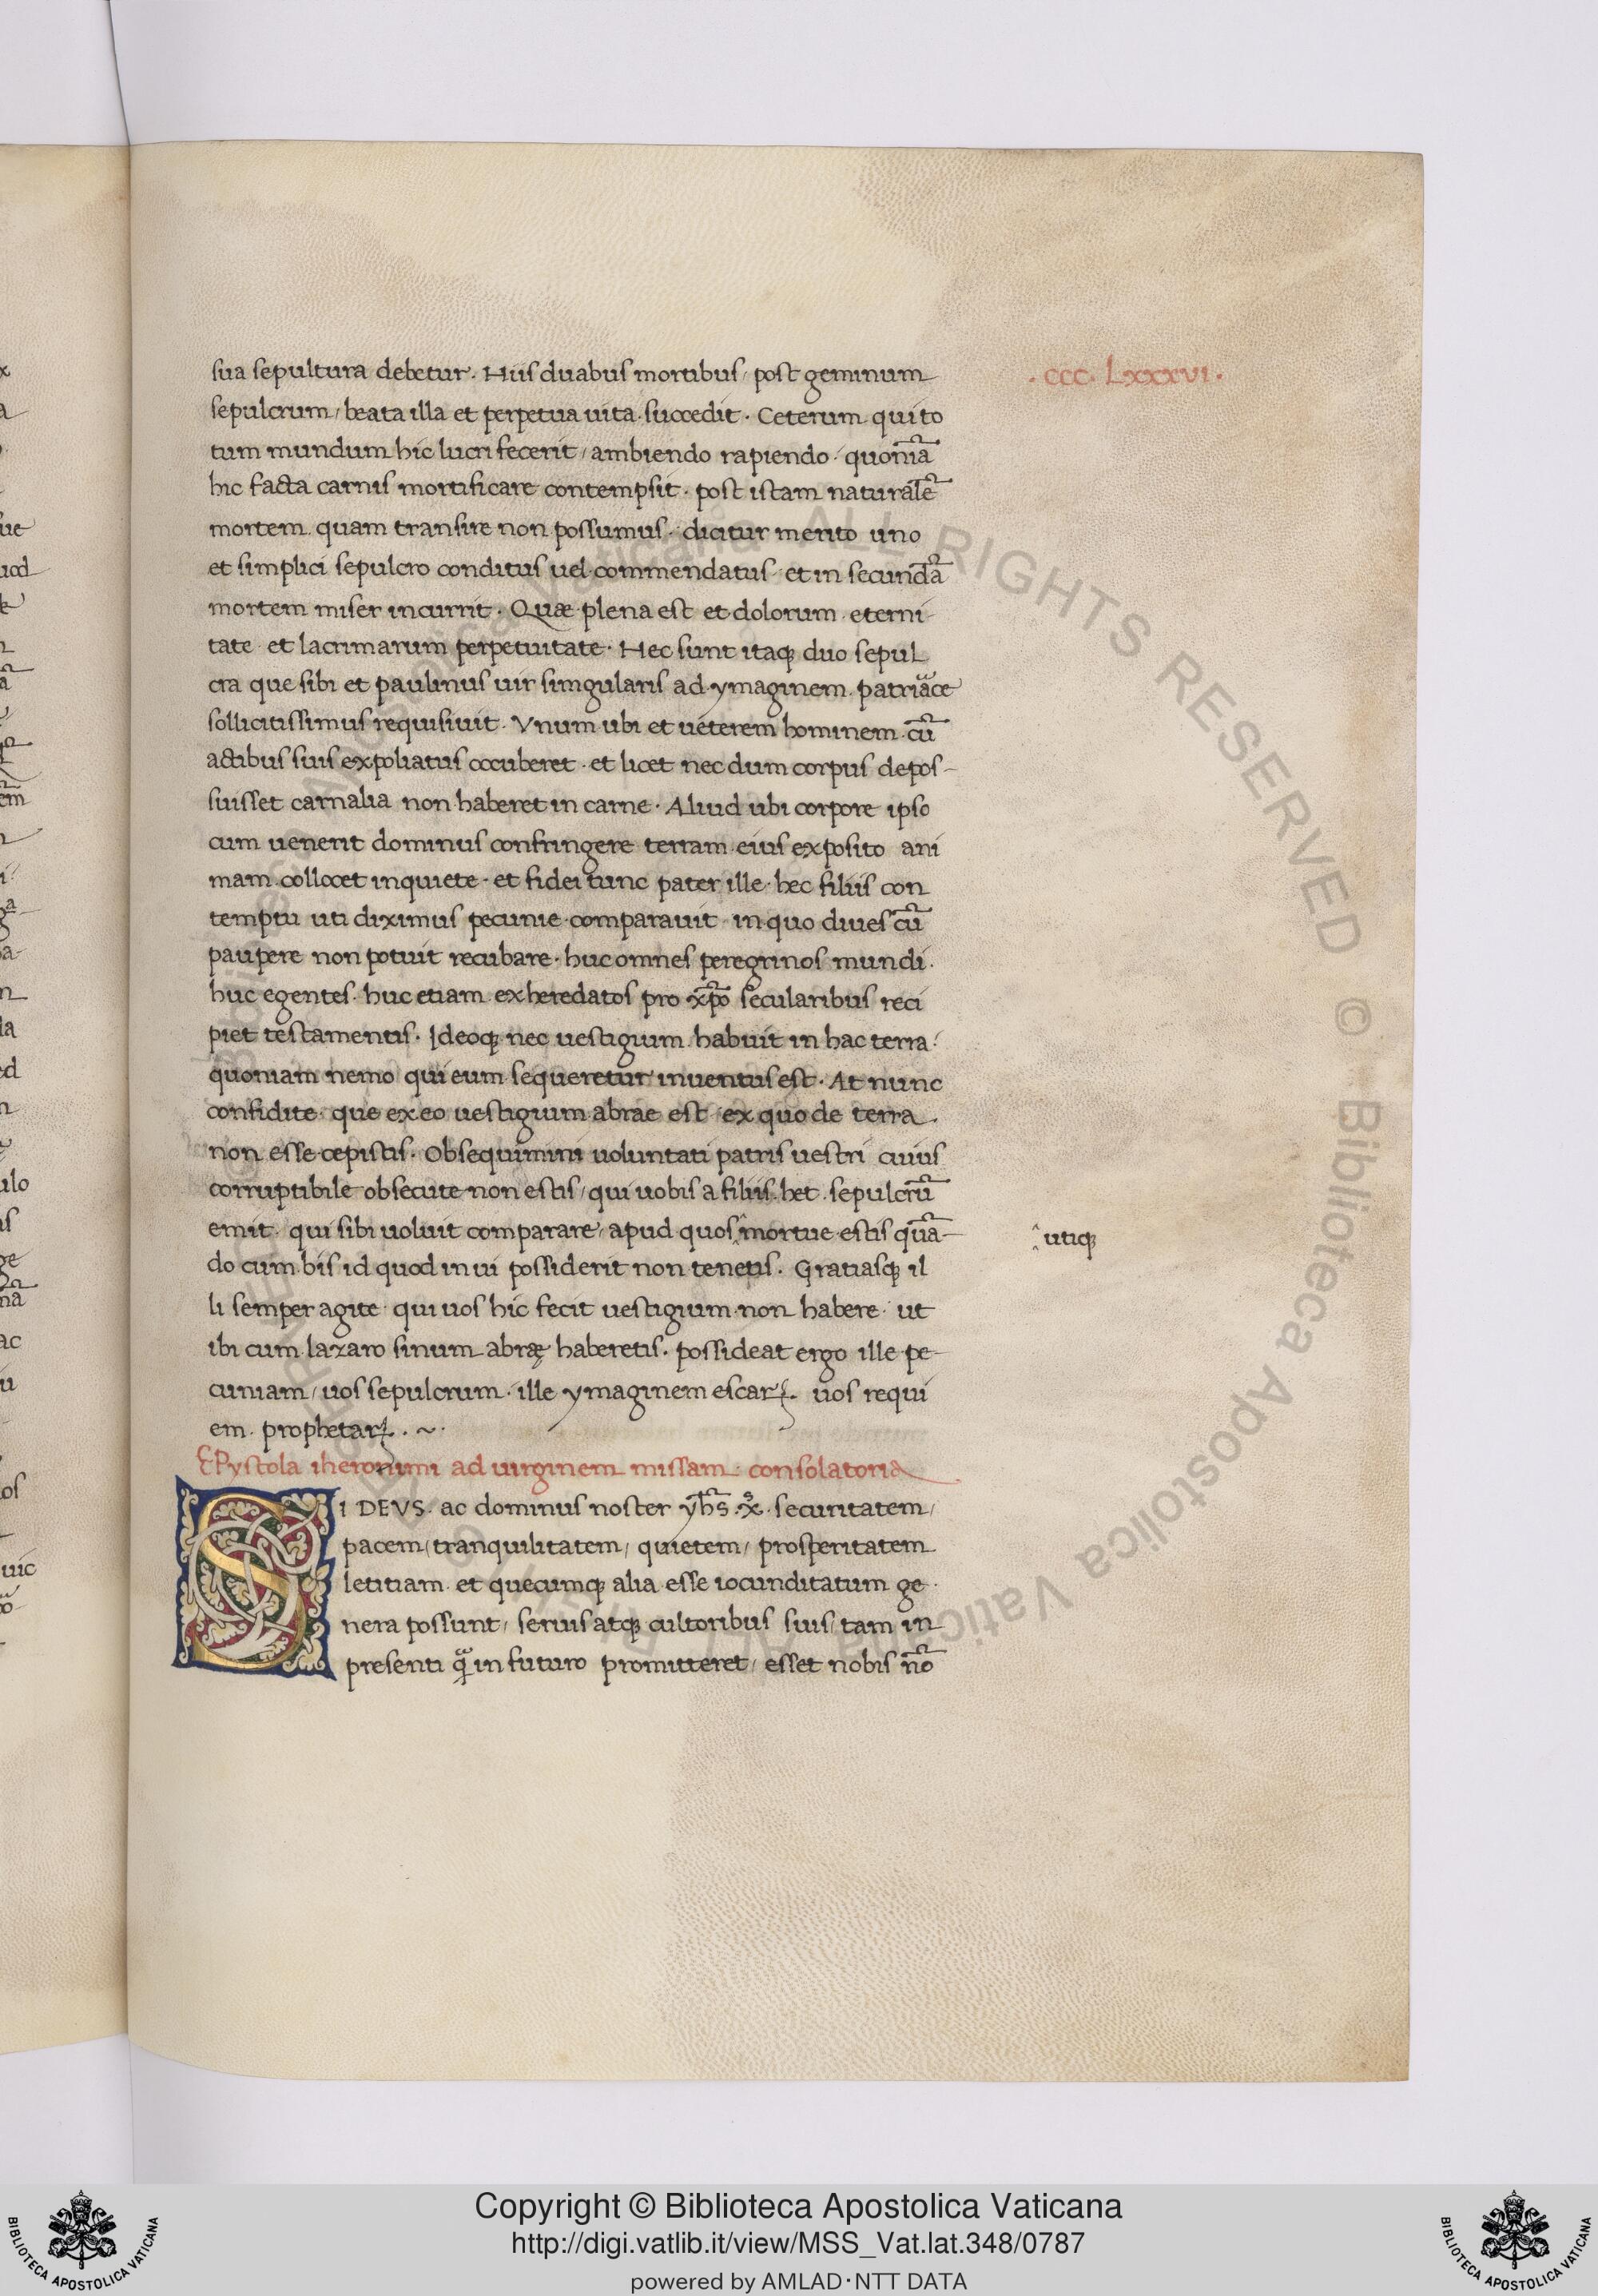 sua sepultura debetur. Hiis duabus mortibus, post geminum
.ccc. Lxxxvi.
sepulcrum, beata illa et perpetua uita succedit. Ceterum qui to
tum mundum hic lucri fecerit, ambiendo rapiendo. quoniã
hic facta carnis mortificare contempsit. post istam naturalẽ
mortem quam transire non possumus. dicitur merito uno
et simplici sepulcro conditus uel commendatus et in secundã
mortem miser incurrit. Quæ plena est et dolorum eterni
tate et lacrimarum perpetuitate. Hec sunt itaqꝫ duo sepul
cra que sibi et paulinus uir simgularis ad ymaginem patriace
sollicitissimus requisiuit. Vnum ubi et ueterem hominem cũ
actibus suis expoliatus occuberet. et licet nec dum corpus depos-
suisset carnalia non haberet in carne. Aliud ubi corpore ipso
cum uenerit dominus confringere terram eius exposito ani
mam collocet inquiete. et fidei tunc pater ille. hec filiis con
temptu uti diximus pecunie comparauit in quo diues cũ
paupere non potuit recubare. huc omnes peregrinos mundi.
huc egentes. huc etiam exheredatos pro xp̃o secularibus reci
piet testamentis. Ideoqꝫ nec uestigium habuit in hac terra.
quoniam nemo qui eum sequeretur inuentus est. At nunc
confidite. que ex eo uestigium abrae est ex quo de terra.
non esse cepistis. Obsequimini uoluntati patris uestri cuius
corruptibile obsecute non estis, qui uobis a filiis het sepulcrũ
emit. qui sibi uoluit comparare, apud quos ‸mortue estis quã-
‸utiqꝫ
do cum bis id quod in ui possiderit non tenetis. Gratiasqꝫ il
li semper agite qui uos hic fecit uestigium non habere. ut
ibi cum lazaro sinum abrę haberetis. possideat ergo ille pe-
cuniam, uos sepulcrum. ille ymaginem escarꝝ. uos requi
em prophetarꝝ. ~.
EPystola iheronimi ad uirginem missam consolatoria
SI DEVS. ac dominus noster yh̃s. x̃. securitatem,
pacem, tranquilitatem, quietem, prosperitatem
letitiam et quecumqꝫ alia esse iocunditatum ge
nera possunt, seruis atqꝫ cultoribus suis, tam in
presenti q̃ in futuro promitteret, esset nobis nõ
ALL RIGHTS RESERVED © Biblioteca Apostolica Vaticana
Copyright © Biblioteca Apostolica Vaticana
http://digi.vatlib.it/view/MSS_Vat.lat.348/0787
powered by AMLAD·NTT DATA
BIBLIOTECA APOSTOLICA VATICANA
BIBLIOTECA APOSTOLICA VATICANA